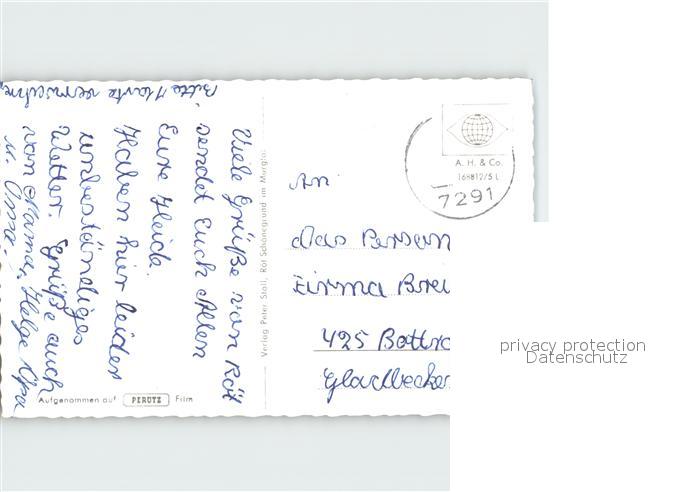 Bitte Karte
Viele Grüße von Röt
sendet Euch Allen
Eure Heide.
Haben hier leider
unbeständiges
Wetter. Grüße auch
von Mama, Helge Opa
u. Oma.
Verlag Peter Stoll, Röt Schönegrund im Murgtal
Aufgenommen auf PERUTZ Film
A. H. & Co.
168812/5 L
7291
An
das Person
Firma Brei
425 Bottro
Gladbecker
privacy protection
Datenschutz